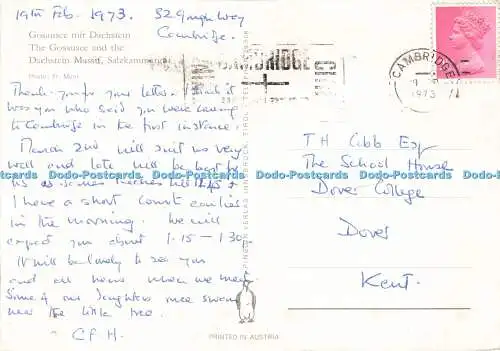 19th Feb. 1973.
52 Gough Way
Cambridge.
Gosausee mit Dachstein
The Gosausee and the
Dachstein Massif, Salzkammergut
Photo: Fr. Mori
Thank you for your letter. I think it
was you who said you were coming
to Cambridge in the first instance.
March 2nd will suit us very
well and late will be best for
us as James teaches till 12.45 &
I have a short Count earlier
in the morning. We will
expect you about 1-15 – 1.30
It will be lovely to see you
and all news when we meet.
Some of our daughters once swam
near the little tree.
C F H.
CAMBRIDGE
CAMBRIDGE
1973
TH Cobb Esq
The School House
Dover College
Dover
Kent.
Dodo-Postcards Dodo-Postcards Dodo-Postcards Dodo-Postcards Dodo-Postcards
PINGUIN VERLAG INNSBRUCK, TIROL
PRINTED IN AUSTRIA